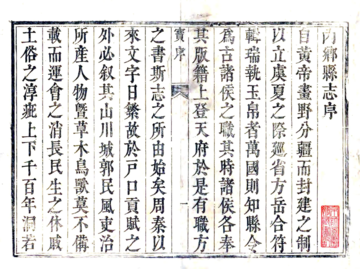 內鄉縣志序
自黃帝畫野分疆而封建之制
以立虞夏之際廵省方岳合符
輯瑞執玉帛者萬國則知縣令
為古諸侯之職其時諸侯各奉
其版籍上登天府於是有職方
寳序
一
之書斯志之所由始矣周秦以
來文字日繁故於戶口貢賦之
外必叙其山川城郭民風吏治
所產人物曁草木鳥獸莫不備
載而運會之消長民生之休戚
土俗之淳疵上下千百年洞若